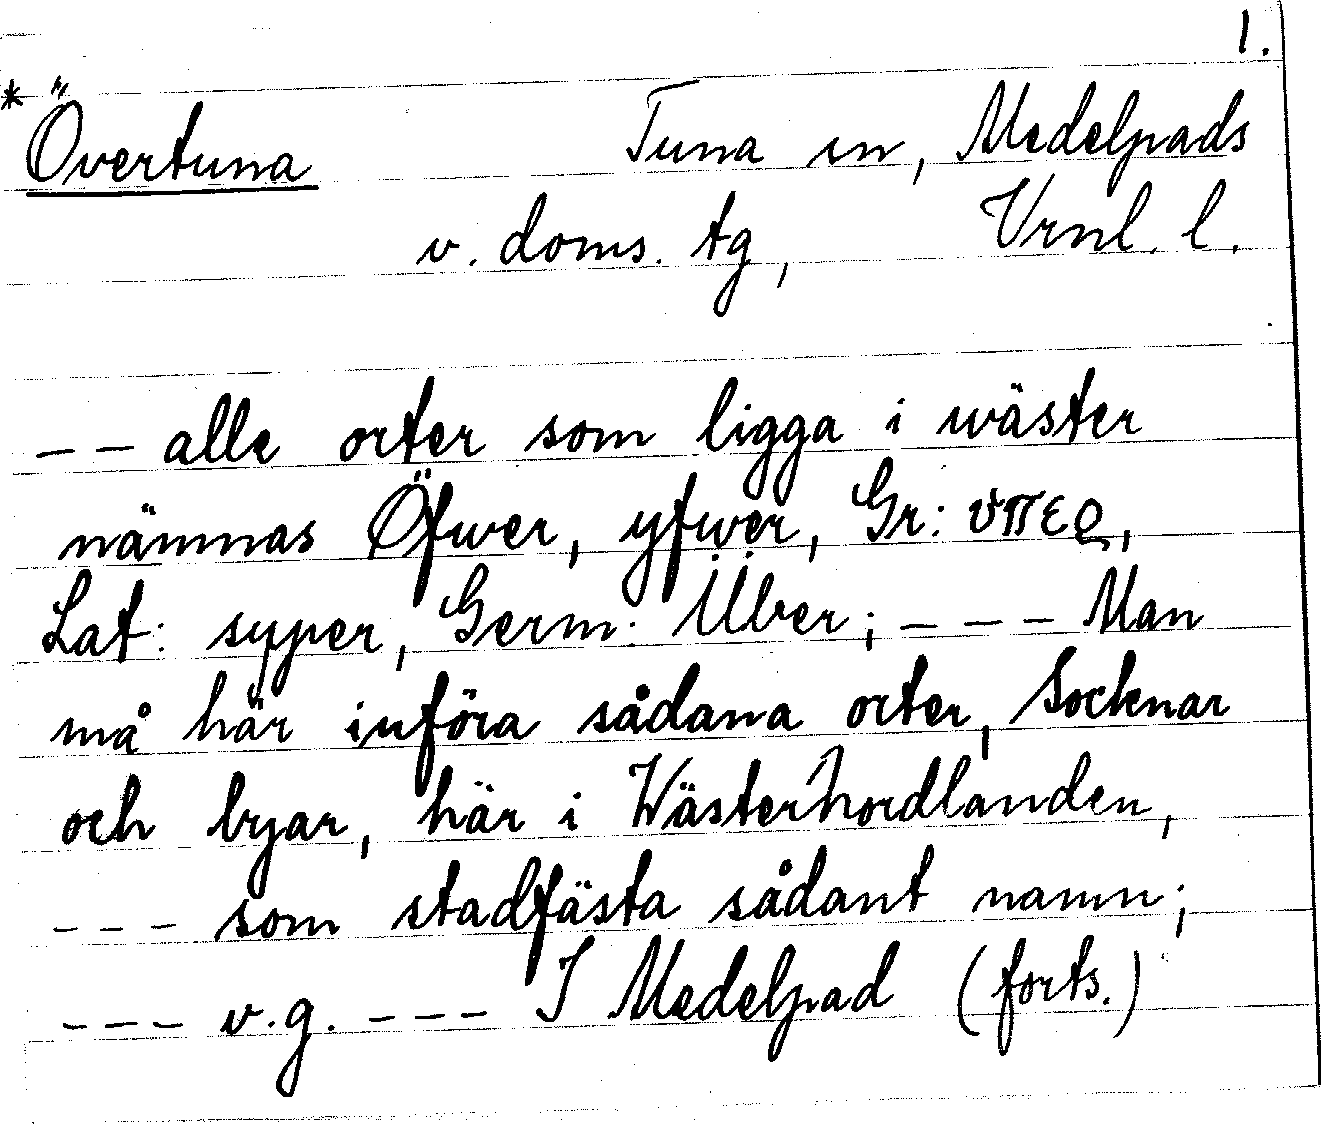 1.
*Övertuna Tuna sn, Medelpads
v. doms. tg, Vrnl. l.
- - alle orter som ligga i wäster
nämnas Öfwer, yfwer, Gr: υπερ,
Lat: syper, Germ: Über; - - - Man
må här införa sådana orter, Socknar
och byar, här i Wästerhordlanden,
- - - som stadfästa sådant namn;
- - - v.g. - - - I Medelpad (forts.)